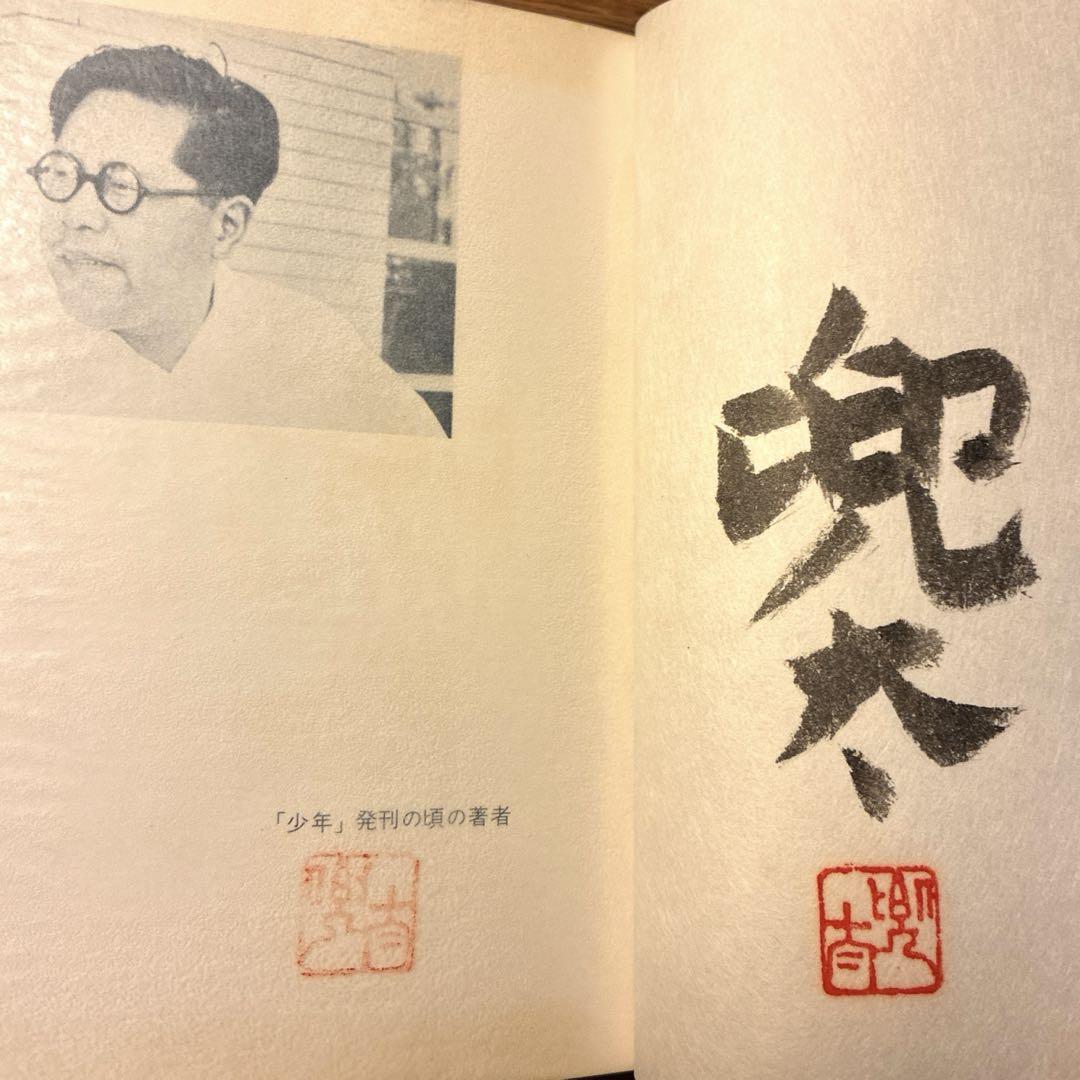 「少年」発刊の頃の著者
兜太